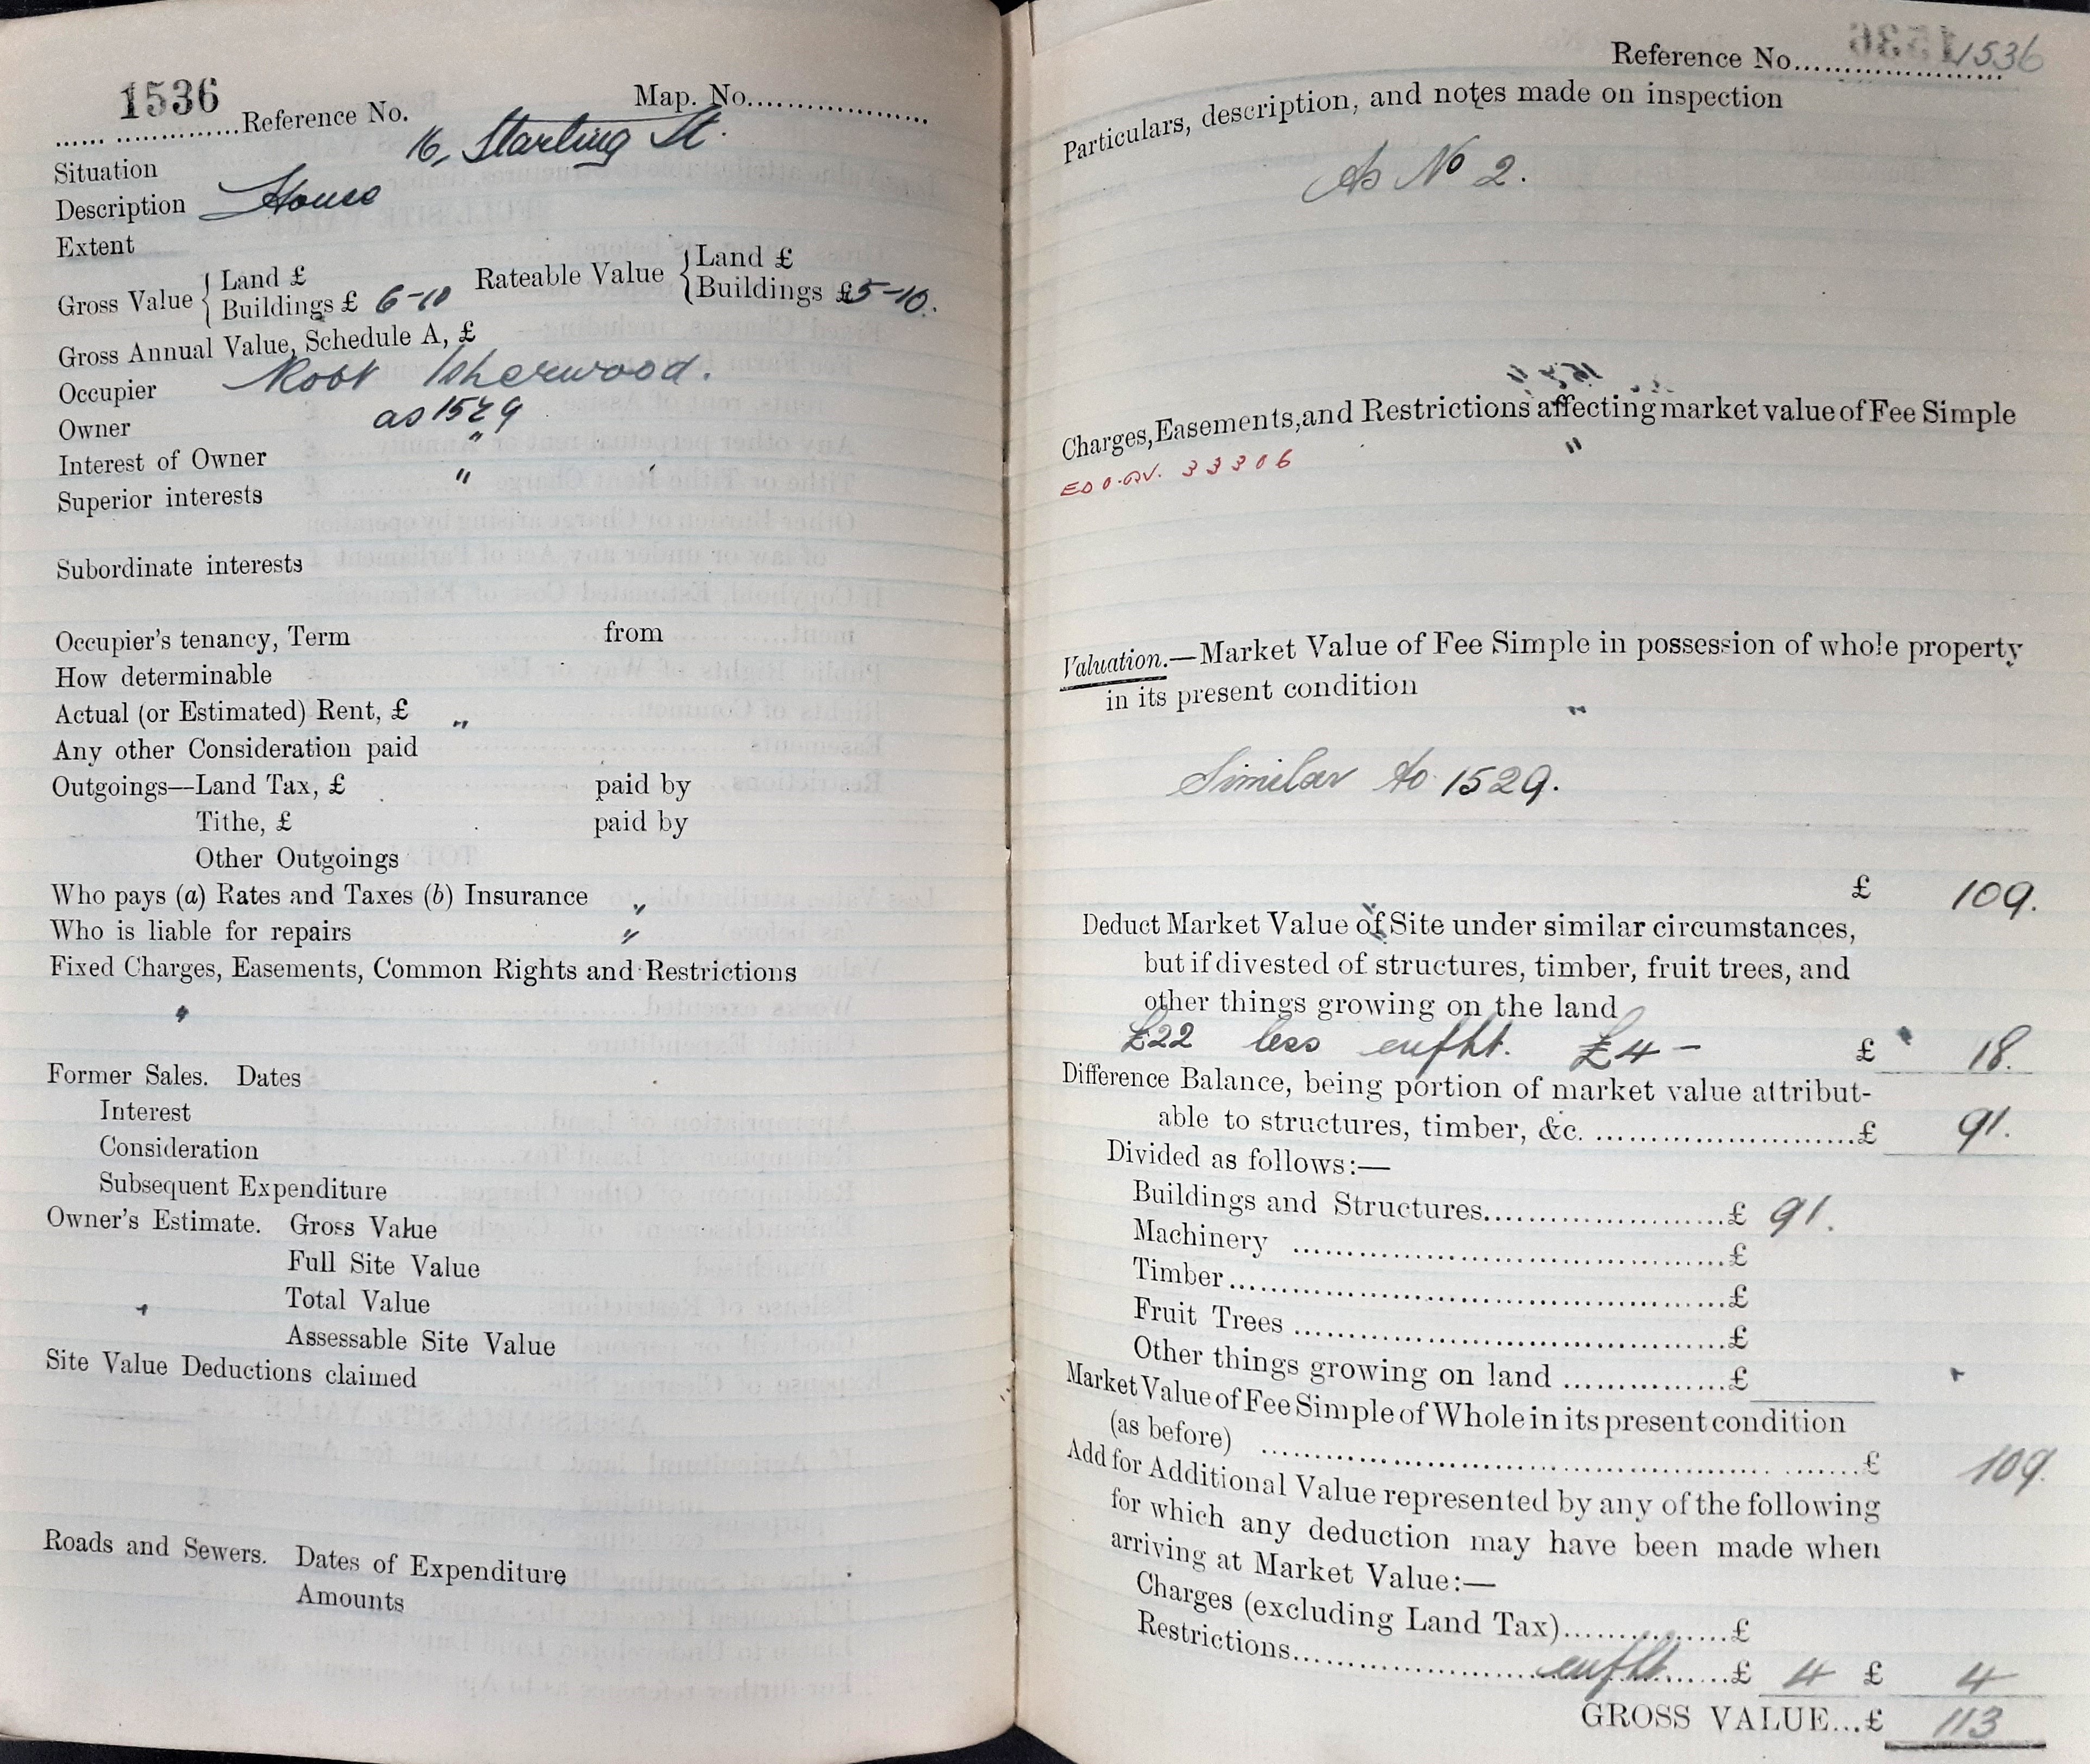 1536
...... ..............Reference No. Map. No..................
Situation 16, Starling St.
Description House
Extent
Gross Value { Land £ Rateable Value { Land £
Buildings £ 6-10 Buildings £5-10.
Gross Annual Value, Schedule A, £
Occupier Robt Isherwood.
Owner as 1529
Interest of Owner "
Superior interests "
Subordinate interests
Occupier's tenancy, Term from
How determinable
Actual (or Estimated) Rent, £ "
Any other Consideration paid
Outgoings—Land Tax, £ paid by
Tithe, £ paid by
Other Outgoings
Who pays (a) Rates and Taxes (b) Insurance "
Who is liable for repairs "
Fixed Charges, Easements, Common Rights and Restrictions
"
Former Sales. Dates
Interest
Consideration
Subsequent Expenditure
Owner's Estimate. Gross Value
Full Site Value
Total Value
Assessable Site Value
Site Value Deductions claimed
Roads and Sewers. Dates of Expenditure
Amounts
Reference No. 1536
Particulars, description, and notes made on inspection
As No 2.
Charges, Easements, and Restrictions affecting market value of Fee Simple
33306
Valuation.—Market Value of Fee Simple in possession of whole property
in its present condition
Similar to 1529.
£ 109.
Deduct Market Value of Site under similar circumstances,
but if divested of structures, timber, fruit trees, and
other things growing on the land
£22 less enfht. £4 - £ 18.
Difference Balance, being portion of market value attribut-
able to structures, timber, &c. ............................£ 91.
Divided as follows:—
Buildings and Structures..........................£ 91.
Machinery ................................................£
Timber........................................................£
Fruit Trees ................................................£
Other things growing on land ..................£
Market Value of Fee Simple of Whole in its present condition
(as before) ..................................................................£ 109.
Add for Additional Value represented by any of the following
for which any deduction may have been made when
arriving at Market Value:—
Charges (excluding Land Tax)..................£
Restrictions..............enfht........£ 4 £ 4
GROSS VALUE...£ 113